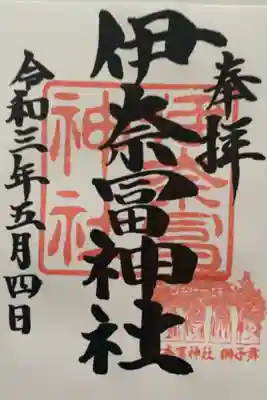 奉拝
伊奈冨神社
令和三年五月四日
伊奈冨
神社
獅子舞